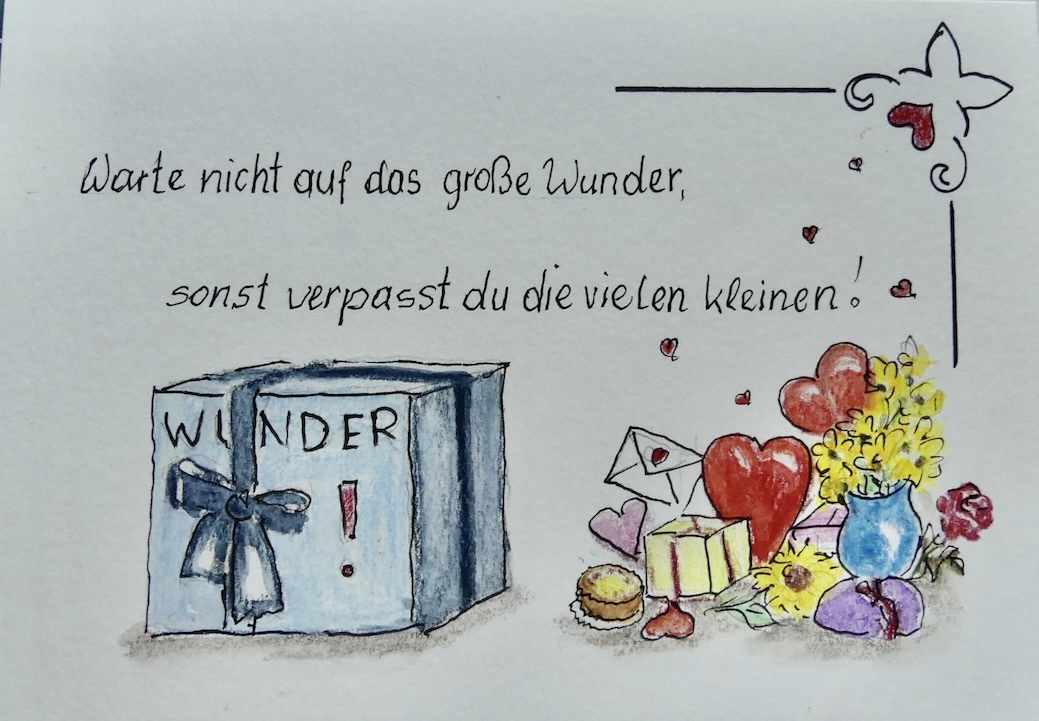 Warte nicht auf das große Wunder,
sonst verpasst du die vielen kleinen!
WUNDER
!